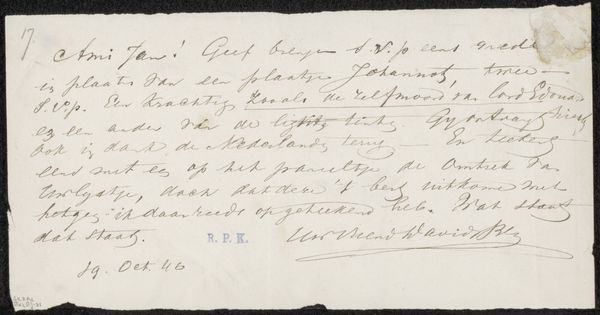 17
Ami Jan! Geef brenger s.v.p eens
in plaats van een plaatje Johannot, twee –
S.v.p. Een krachtig zooals de zelfmoord van Lord Edouard
en een ander van de tinte. Gy ontvangt hierby
ook in dank de Nederlanden terug — En teeken
eens met op het paneeltje de omtrek van
Uw lystje, doch dat deze 't best uitkome met
hetgeen ik daar reeds opgeteekend heb. Wat staat
dat staat.
R. P. K.
Uw Vriend David Bles
19. Oct. 46